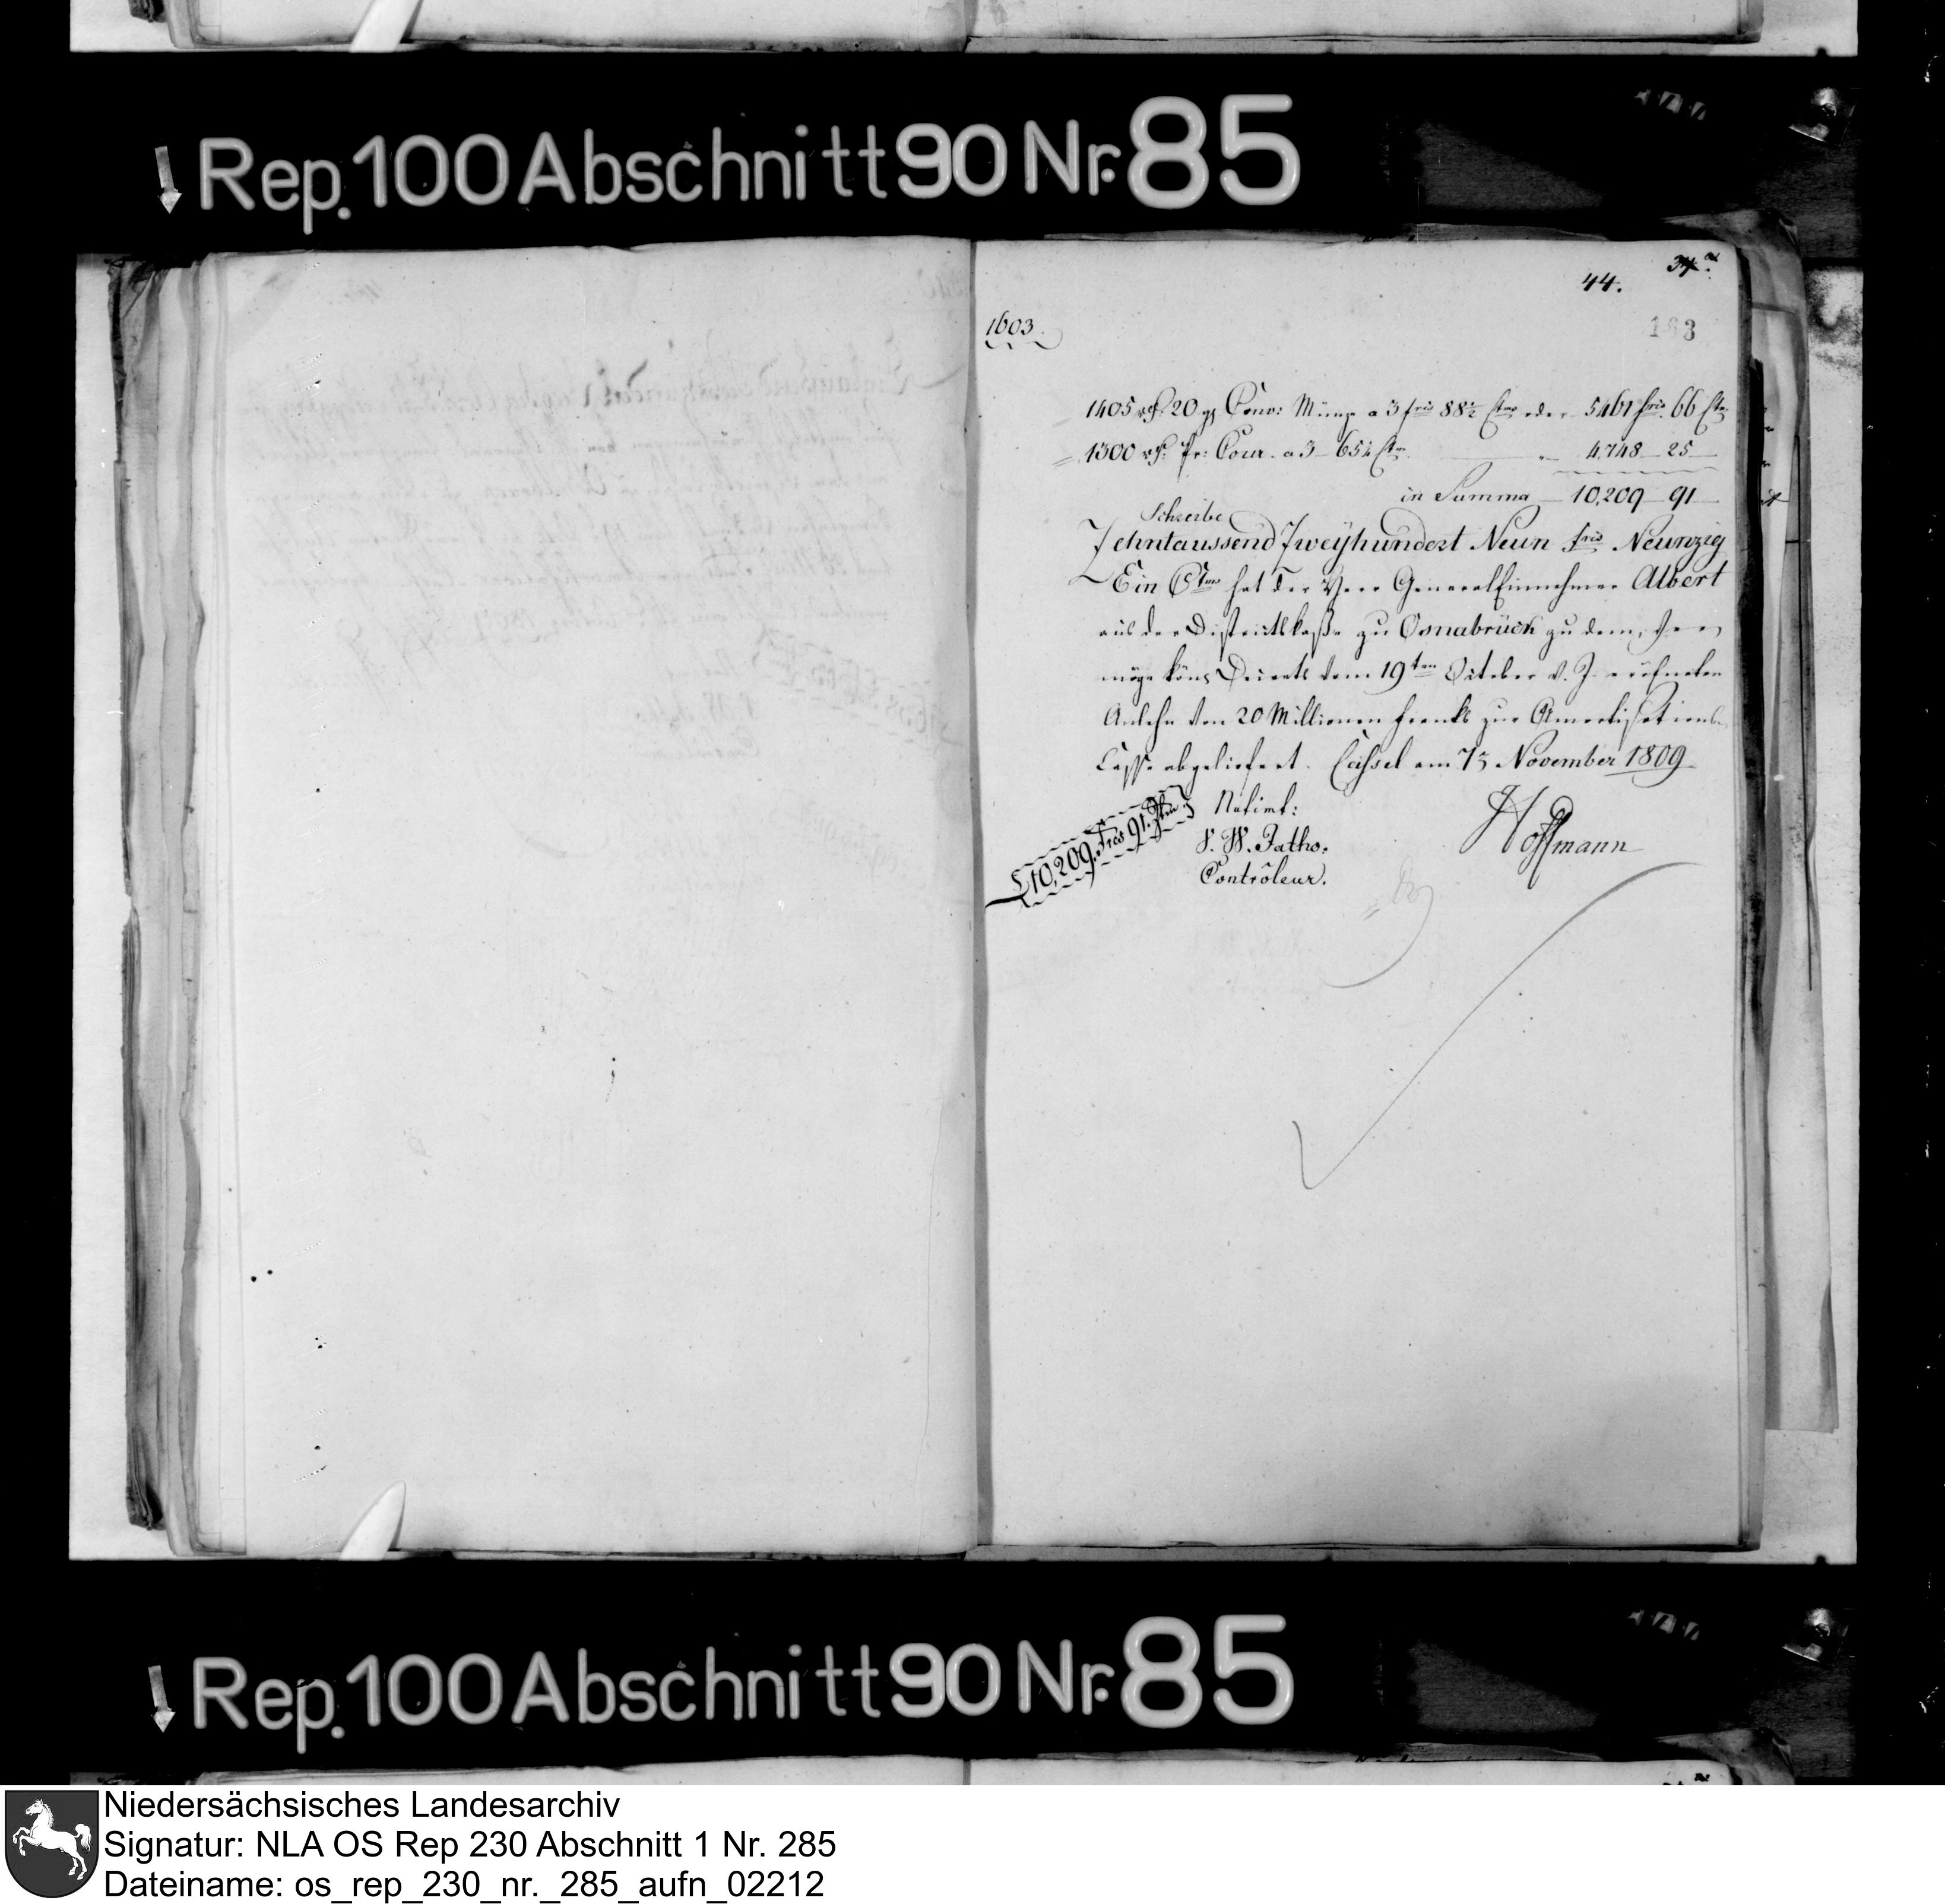 Rep. 100 Abschnitt 90 Nr. 85
44.
163
1603.
1405 rtl. 20 gg Conv: Münze a 3 frcs 88½ Ctms oder 5461 frcs. 66 Ctm.
1300 rtl. Pr: Cour. a 3 — 65¼ Ctm. — " — 4,748 — 25 —
in Summa — 10,209 — 91 —
Schreibe
Zehntaussend Zweyhundert Neun frcs Neunzig
Ein Ctms hat der Herr General Einnehmer Albert
aus der Districtskaße zu Osnabrück zu dem, ver-
möge köng Decrets vom 19ten October v. J. eröfneten
Anlehn von 20 Millionen Franks zur Amortisations-
Casse abgeliefert. Cassel am 7n November 1809.
10,209. Frcs 91. Ctm
Notirt:
Hoffmann
V. W. Jatho.
Contrôleur.
Rep. 100 Abschnitt 90 Nr. 85
Niedersächsisches Landesarchiv
Signatur: NLA OS Rep 230 Abschnitt 1 Nr. 285
Dateiname: os_rep_230_nr._285_aufn_02212